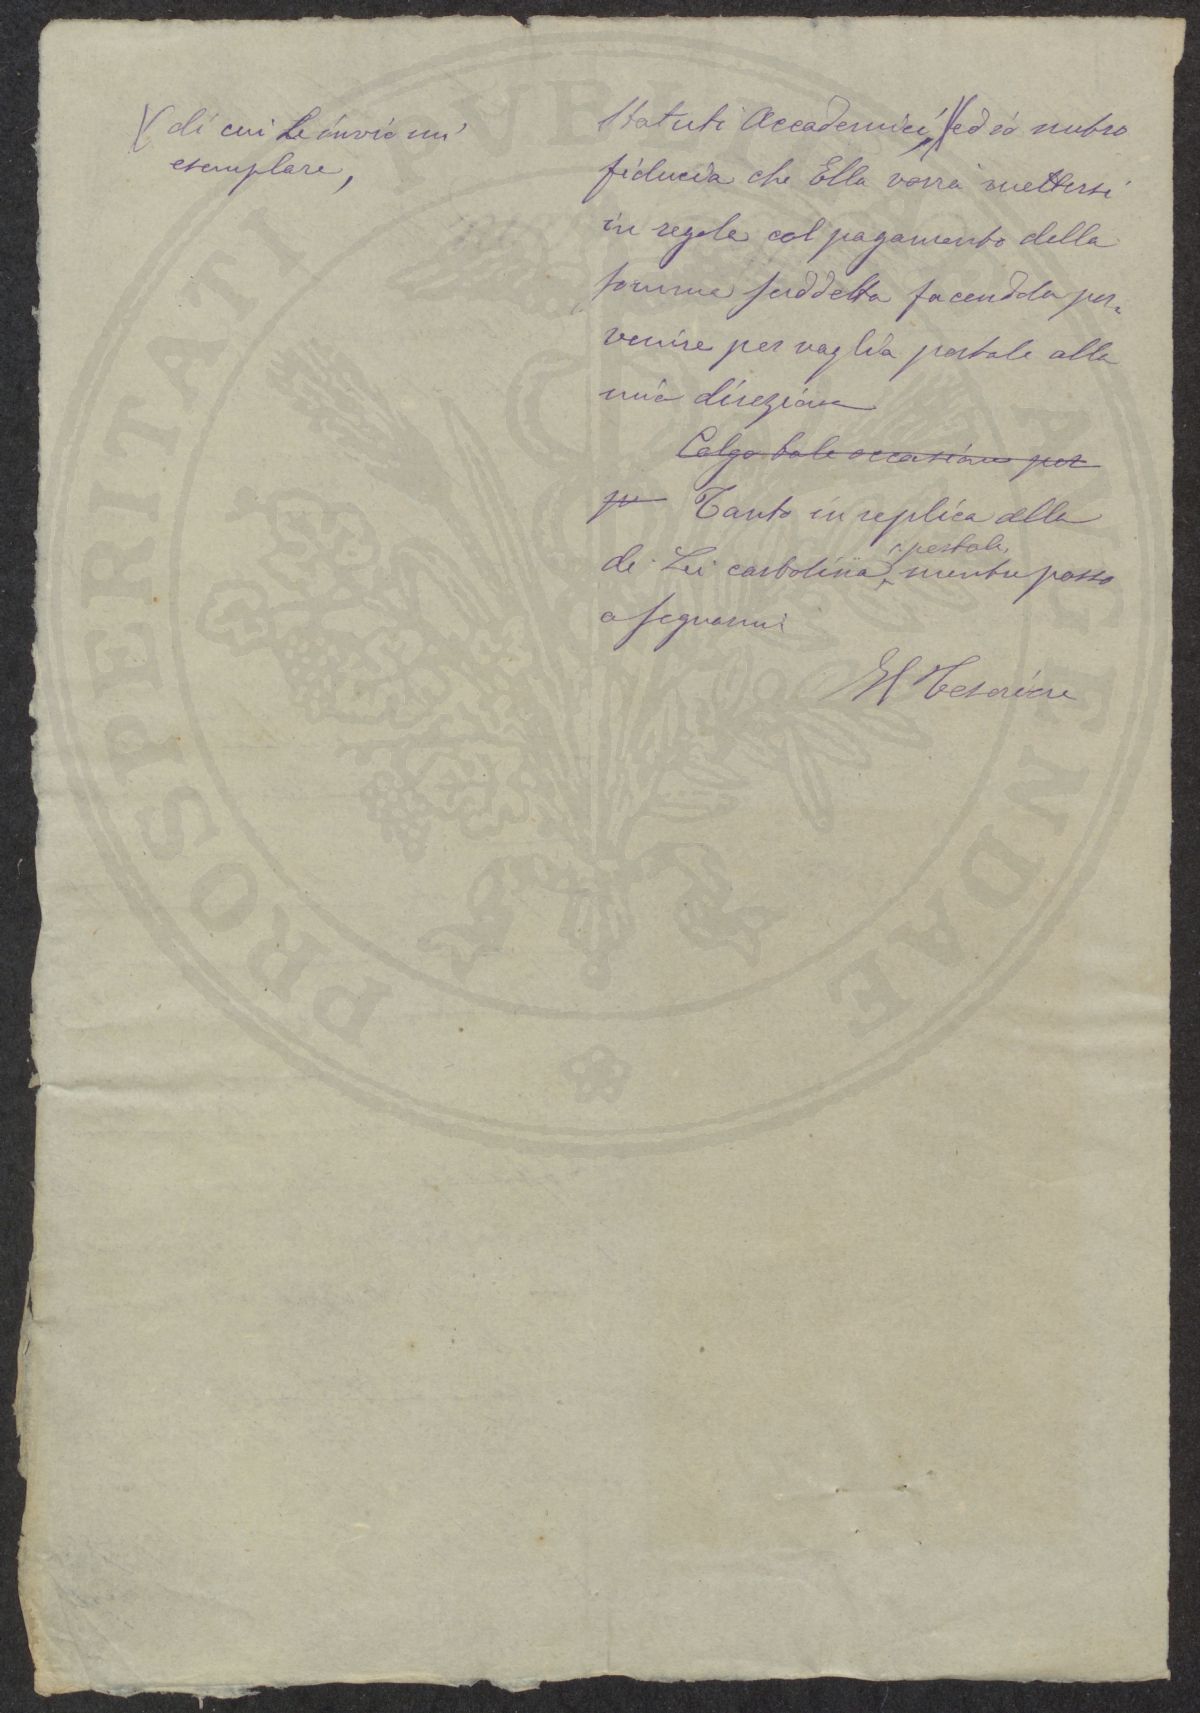 di cui Le invio un'
esemplare,
Statuti Accademici, ed io nutro
fiducia che Ella vorrà mettersi
in regola col pagamento della
somma suddetta facendola per-
venire per vaglia postale alla
mia direzione
Colgo tale occasione per
pe Tanto in replica alla
postale,
di Lei cartolina, mentre passo
a segnarmi
Il Tesoriere
PROSPERITATI PUBLICAE AUGENDAE